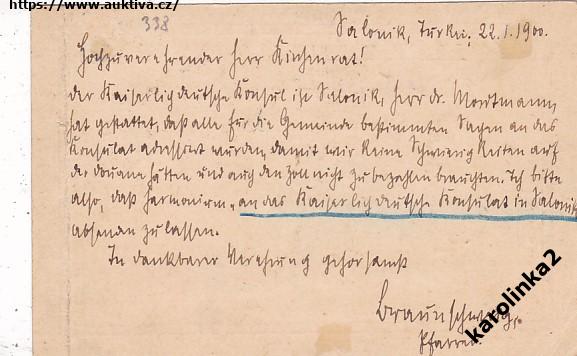 https://www.auktiva.cz/
338
Salonik, Turkei, 22.I.1900.
Hochzuverehrender Herr Kirchenrat!
Der Kaiserlich deutsche Konsul in Salonik, Herr Dr. Mordtmann,
hat gestattet, daß alle für die Gemeinde bestimmten Sachen an das
Konsulat adressirt wurden, damit wir keine Schwierigkeiten auf
der Douane hätten und auch den Zoll nicht zu bezahlen brauchten. Ich bitte
also, daß Harmonium „an das Kaiserlich deutsche Konsulat in Salonik
absenden zu lassen.
In dankbarer Verehrung gehorsamst
Braunschweig,
Pfarrer
karolinka2